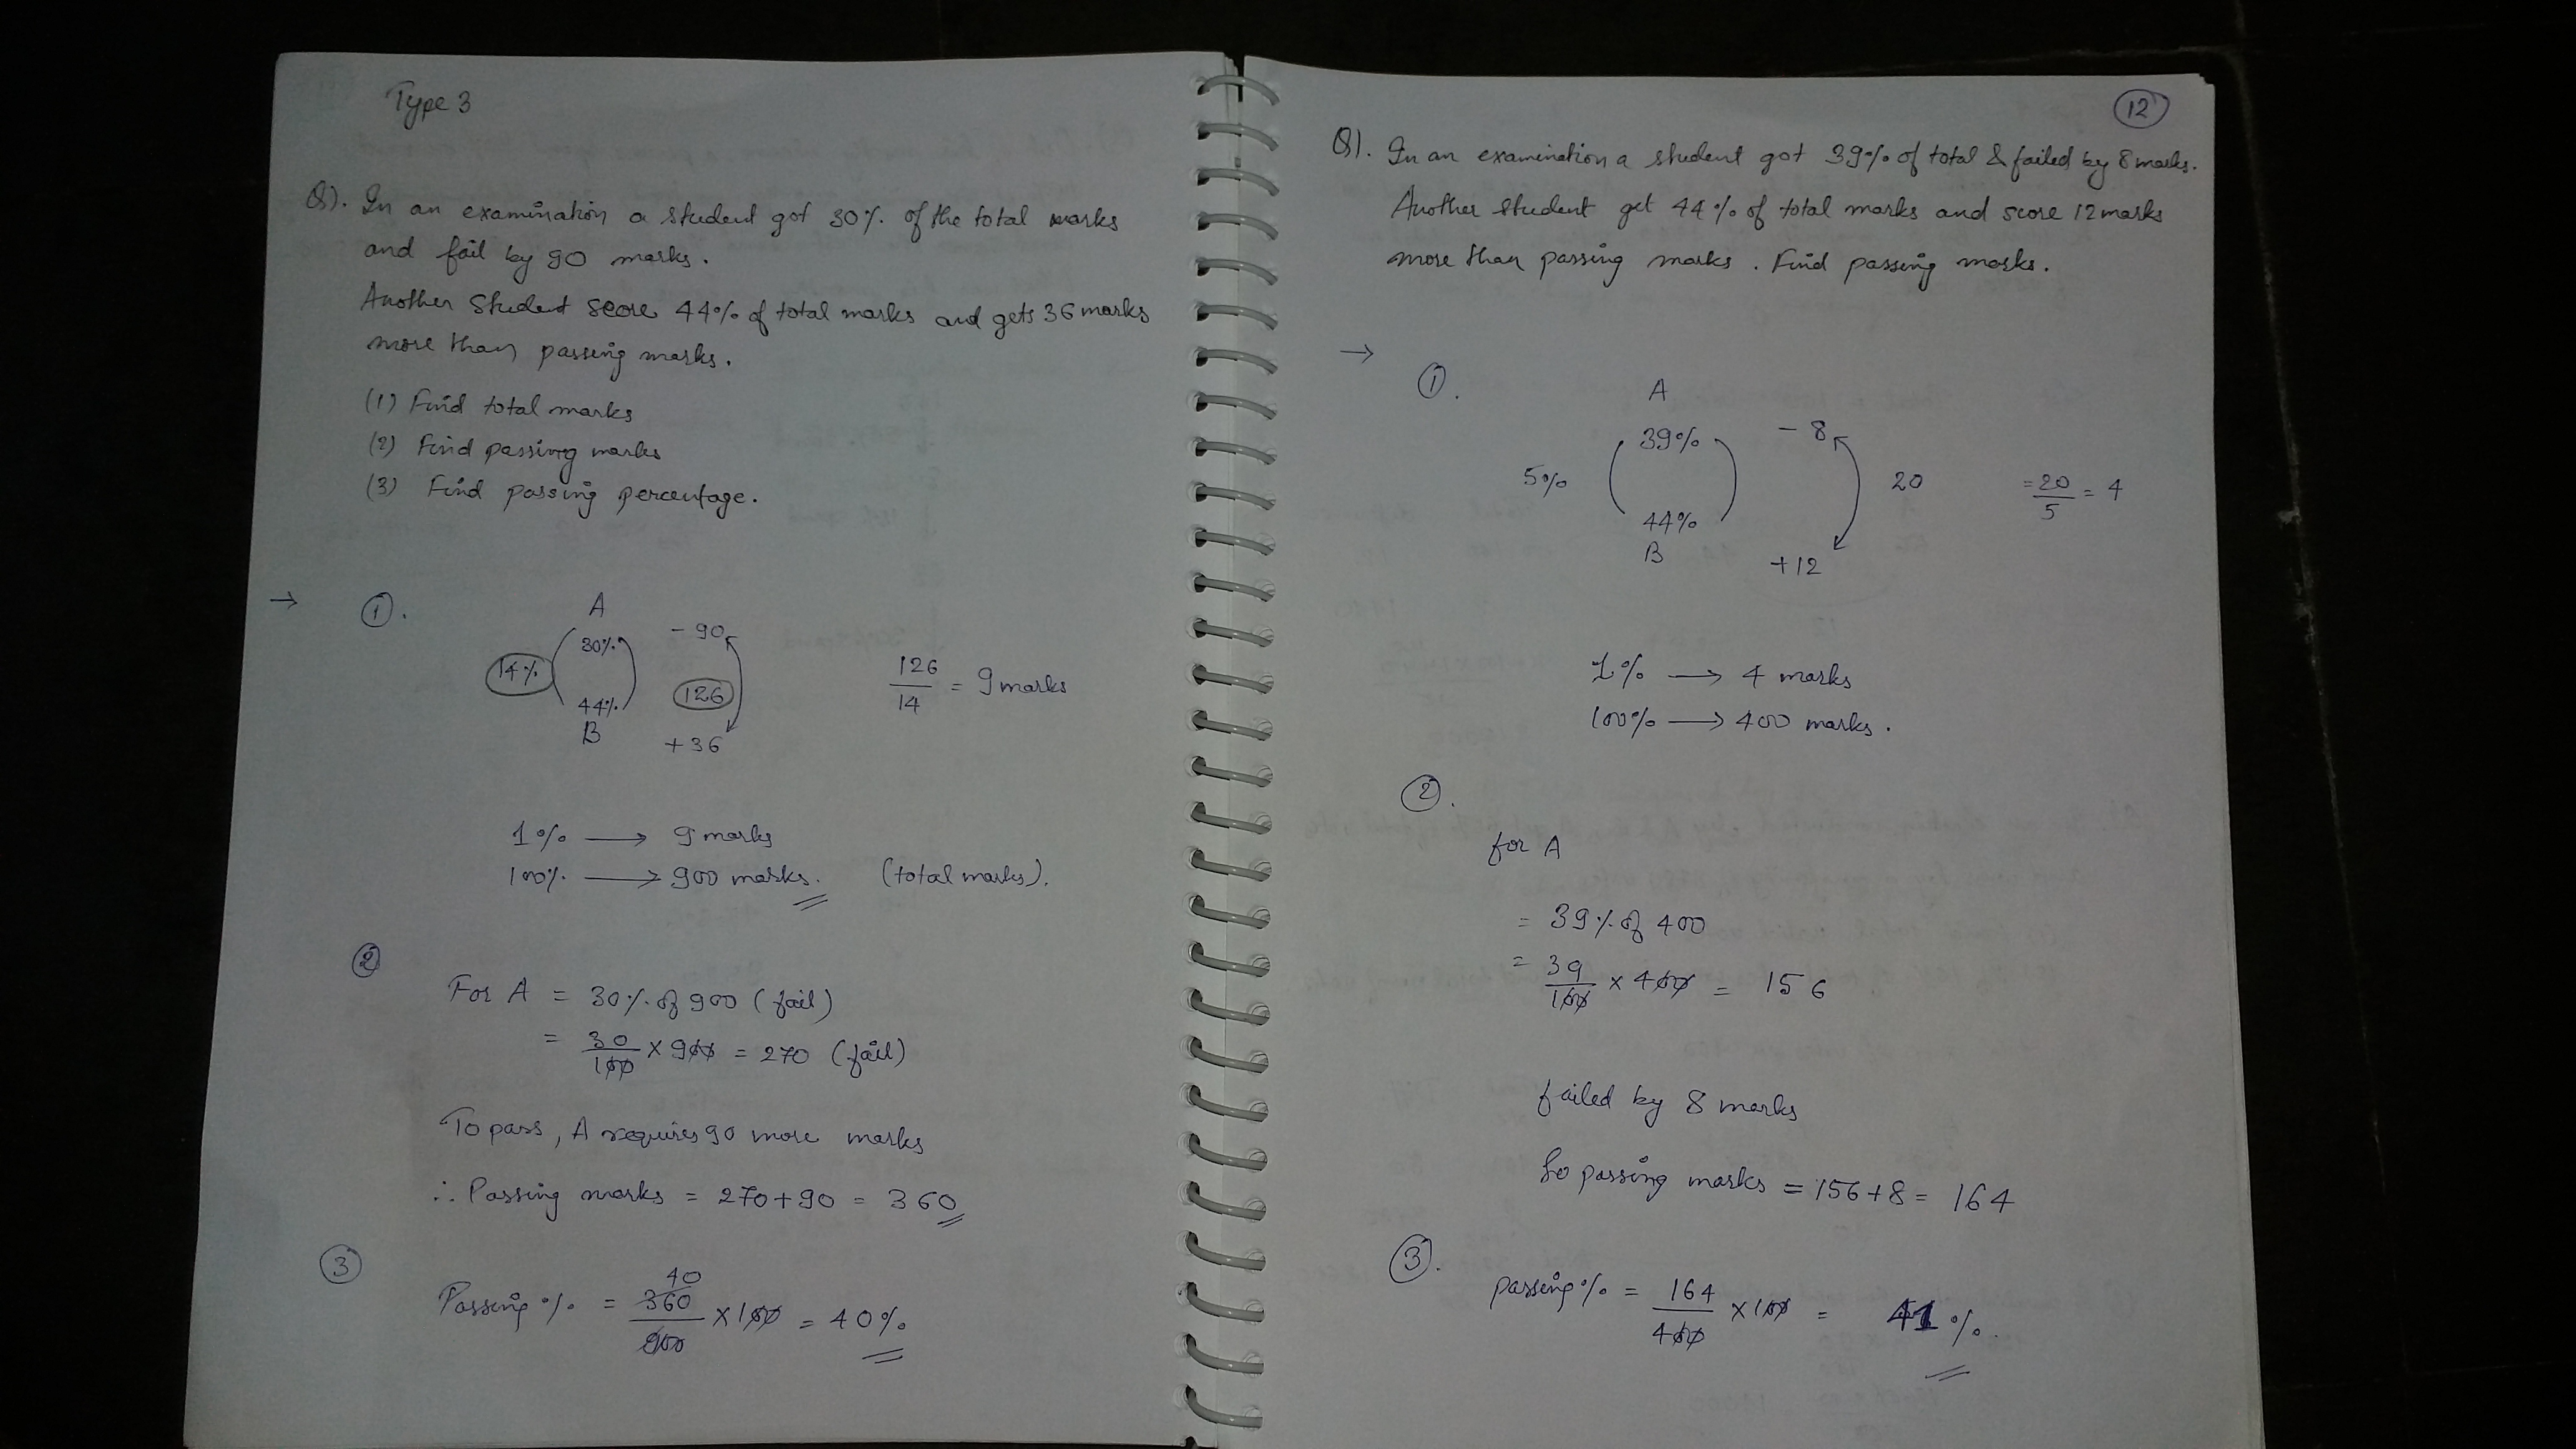 Type 3
Q). In an examination a student got 30% of the total marks
and fail by 90 marks.
Another Student score 44% of total marks and gets 36 marks
more than passing marks.
(1) Find total marks
(2) Find passing marks
(3) Find passing percentage.
→ 1.
A
30%
14%
44%
B
- 90
126
+ 36
126/14 = 9 marks
1% → 9 marks
100% → 900 marks. (total marks).
2
For A = 30% of 900 (fail)
= 30/100 × 900 = 270 (fail)
To pass, A requires 90 more marks
∴ Passing marks = 270+90 = 360
3
40
Passing % = 360/900 × 100 = 40%
12
Q). In an examination a student got 39% of total & failed by 8 marks.
Another Student get 44% of total marks and score 12 marks
more than passing marks. Find passing marks.
→ 1.
A
39%
5%
44%
B
- 8
20
+12
= 20/5 = 4
1% → 4 marks
100% → 400 marks.
2.
for A
= 39% of 400
= 39/100 × 400 = 156
failed by 8 marks
So passing marks = 156+8 = 164
3.
passing % = 164/400 × 100 = 41%.